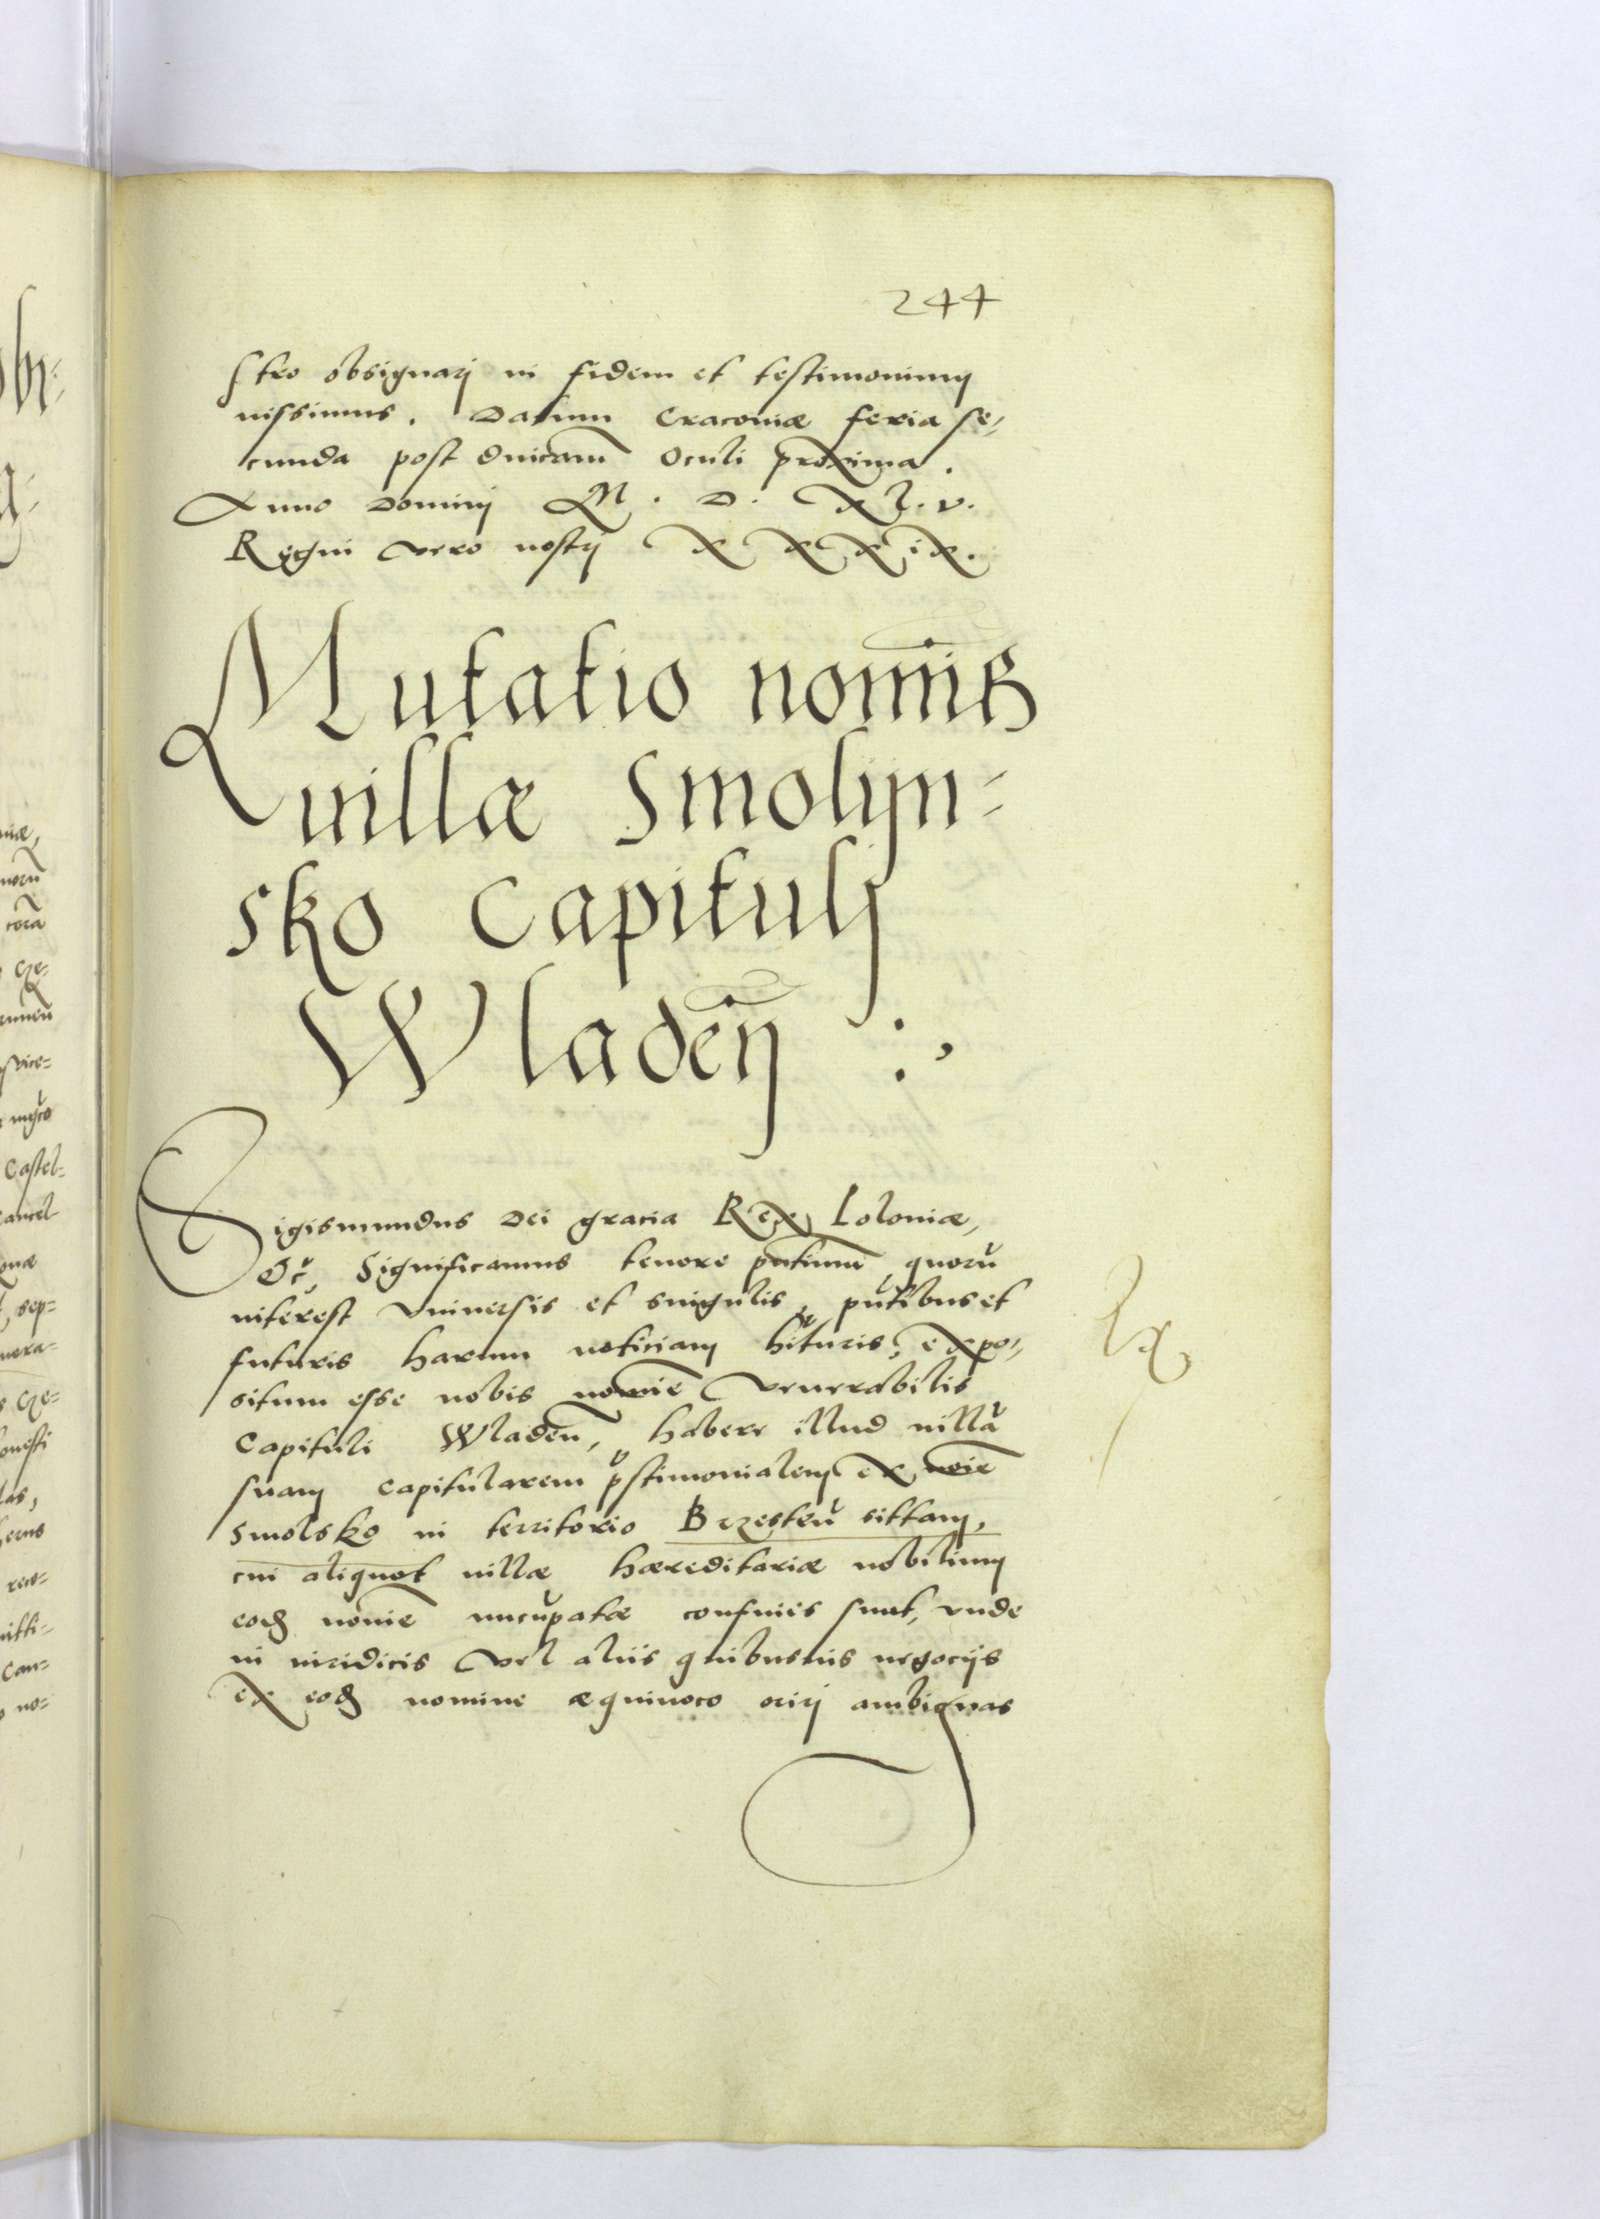 244
stro obsignarj in fidem et testimonium
iussimus. Datum Cracoviæ feria se-
cunda post dnicam Oculi proxima.
Anno Dominj M. D. XL.V.
Regni vero nostrj XXXIX.
Mutatio nominis
villæ Smolyn-
sko Capitulj
Wladen :,
Sigismundus Dei gracia Rex Poloniæ,
etc, Significamus tenore pntium quoru
interest vniuersis et singulis, pntibus et
futuris harum noticiam hituris, expo-
situm esse nobis nomie venerabilis
Capituli Wladen, habere illud villa
suam capitularem pstimonialem ex noie
Smolsko in territorio Brzesten sittam,
cui aliquot villæ hæreditariæ nobilium
eod nomie nucupatæ confines sunt, vnde
in iuridicis vel aliis quibusuis negocijs
ex eod nomine æquiuoco orirj ambiguas